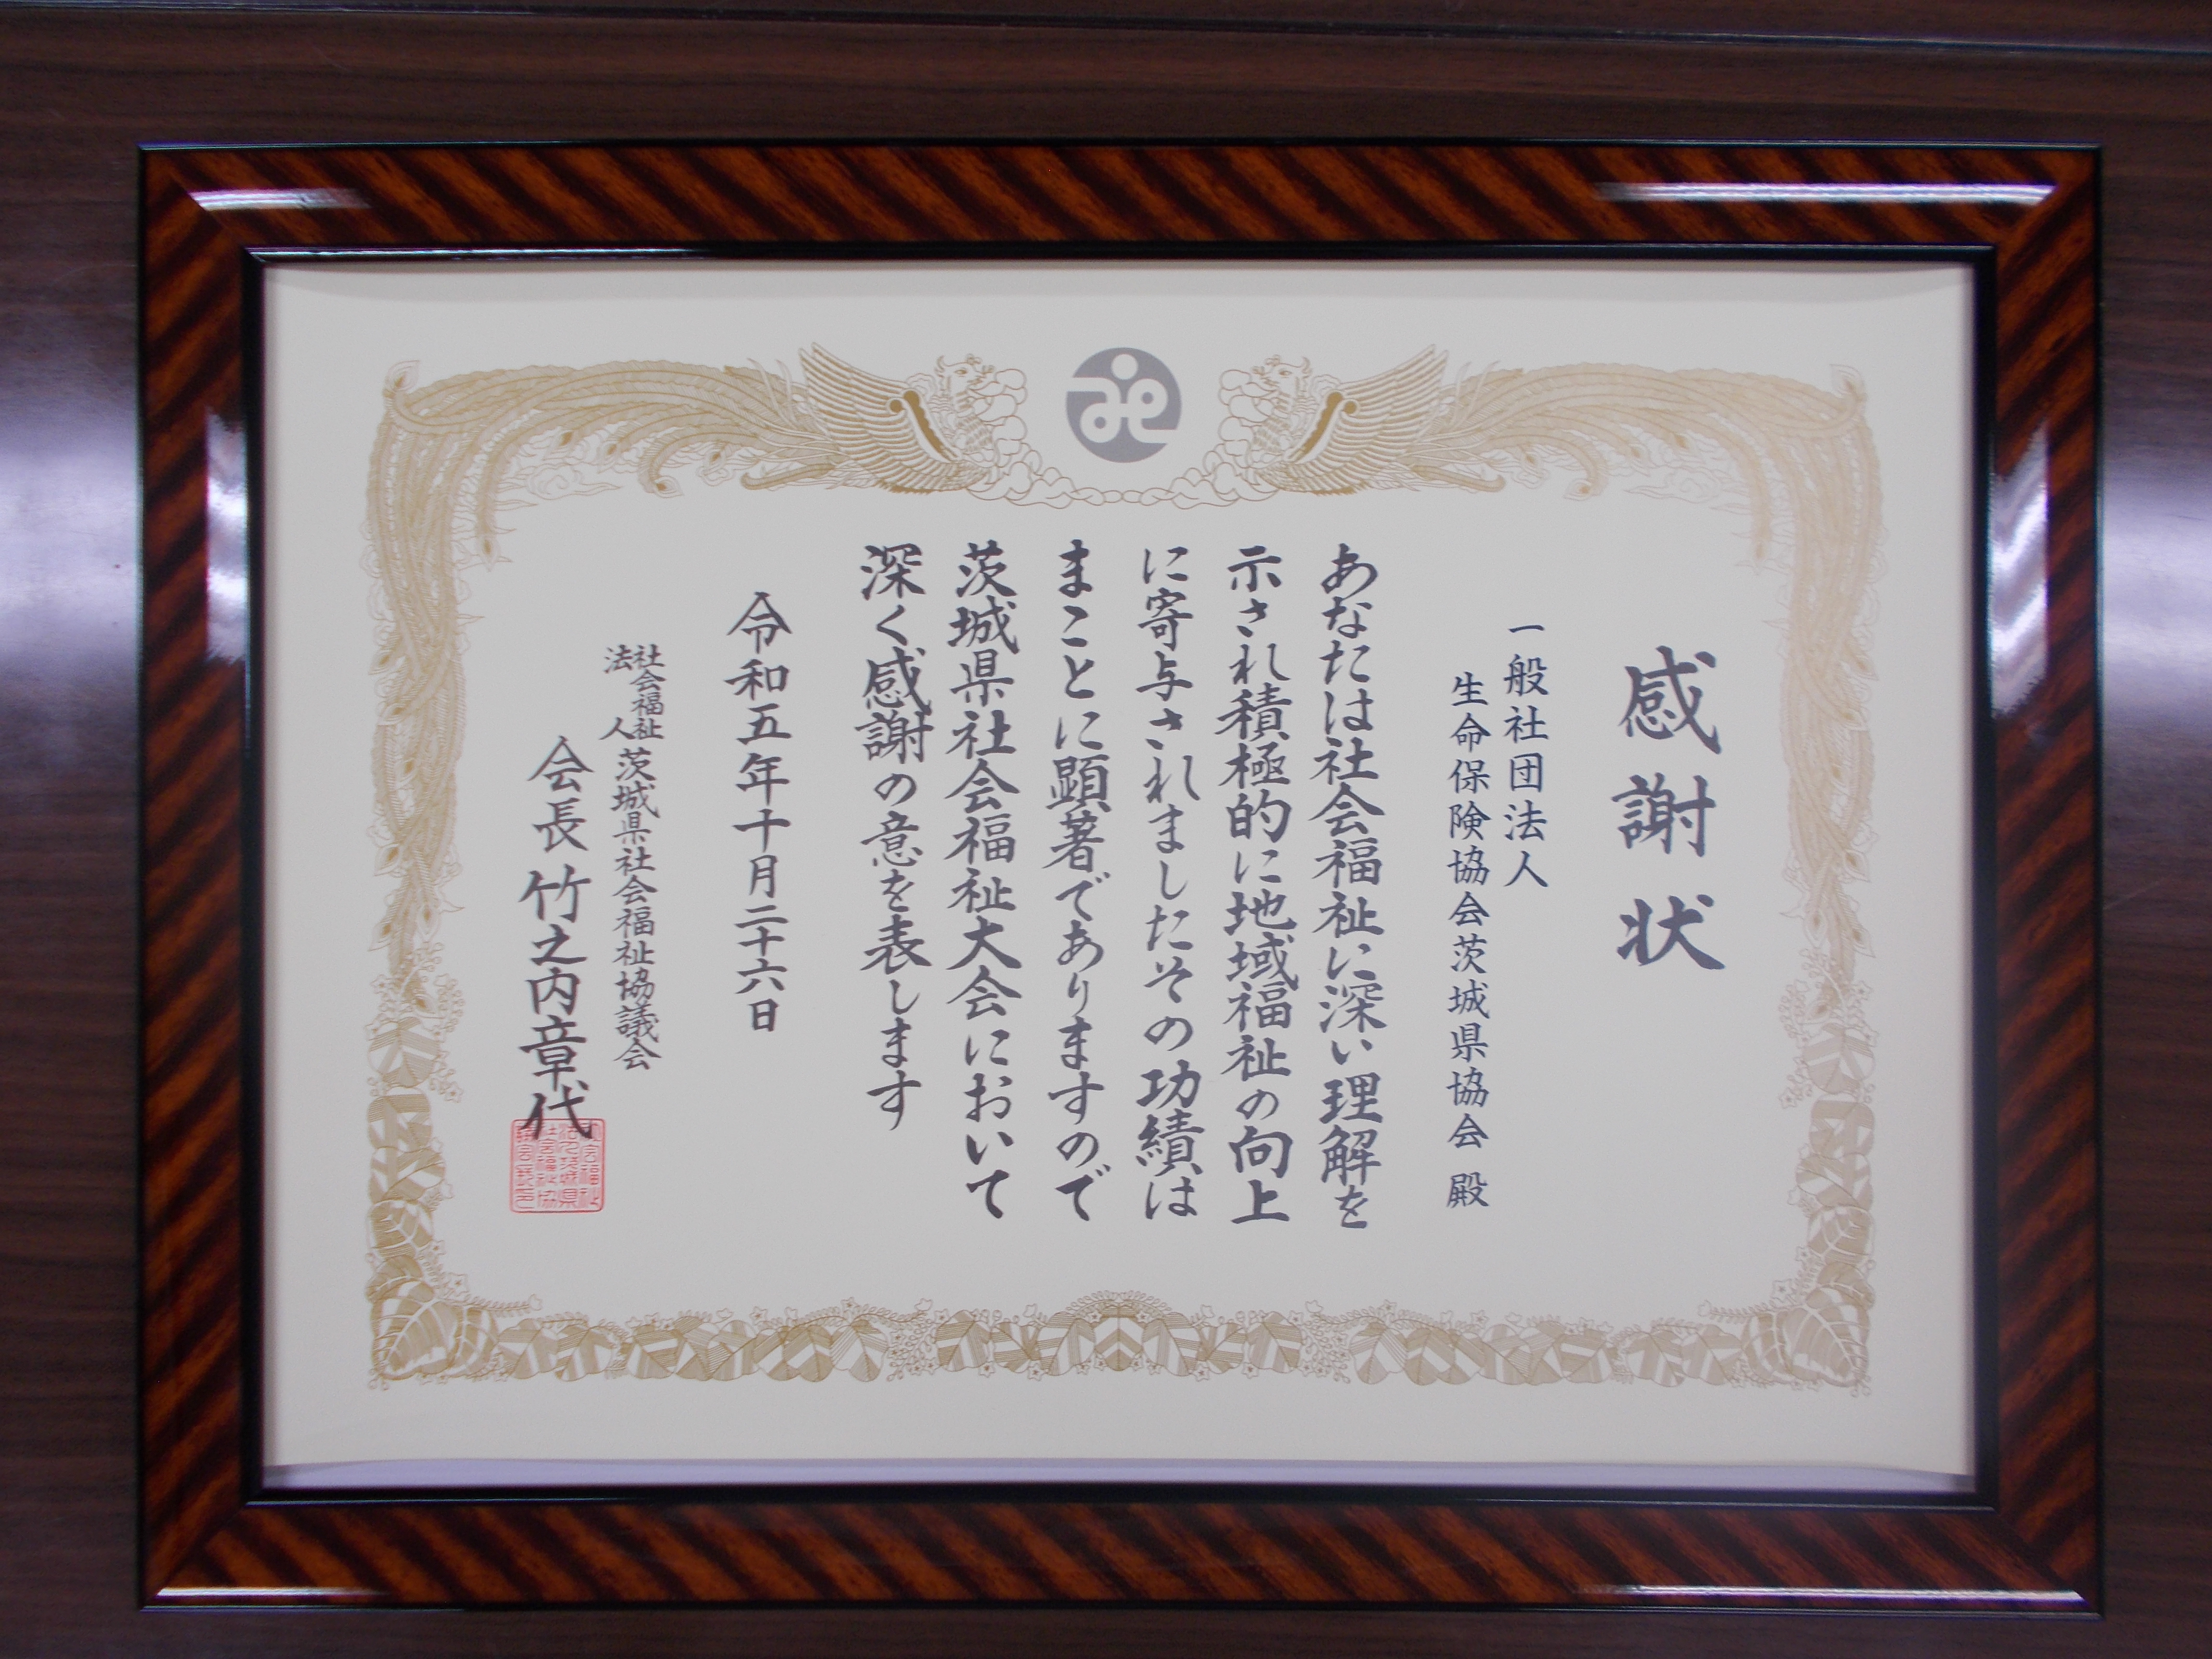 感謝状
一般社団法人
生命保険協会茨城県協会 殿
あなたは社会福祉に深い理解を
示され積極的に地域福祉の向上
に寄与されましたその功績は
まことに顕著でありますので
茨城県社会福祉大会において
深く感謝の意を表します
令和五年十月二十六日
社会福祉法人 茨城県社会福祉協議会
会長 竹之内章代